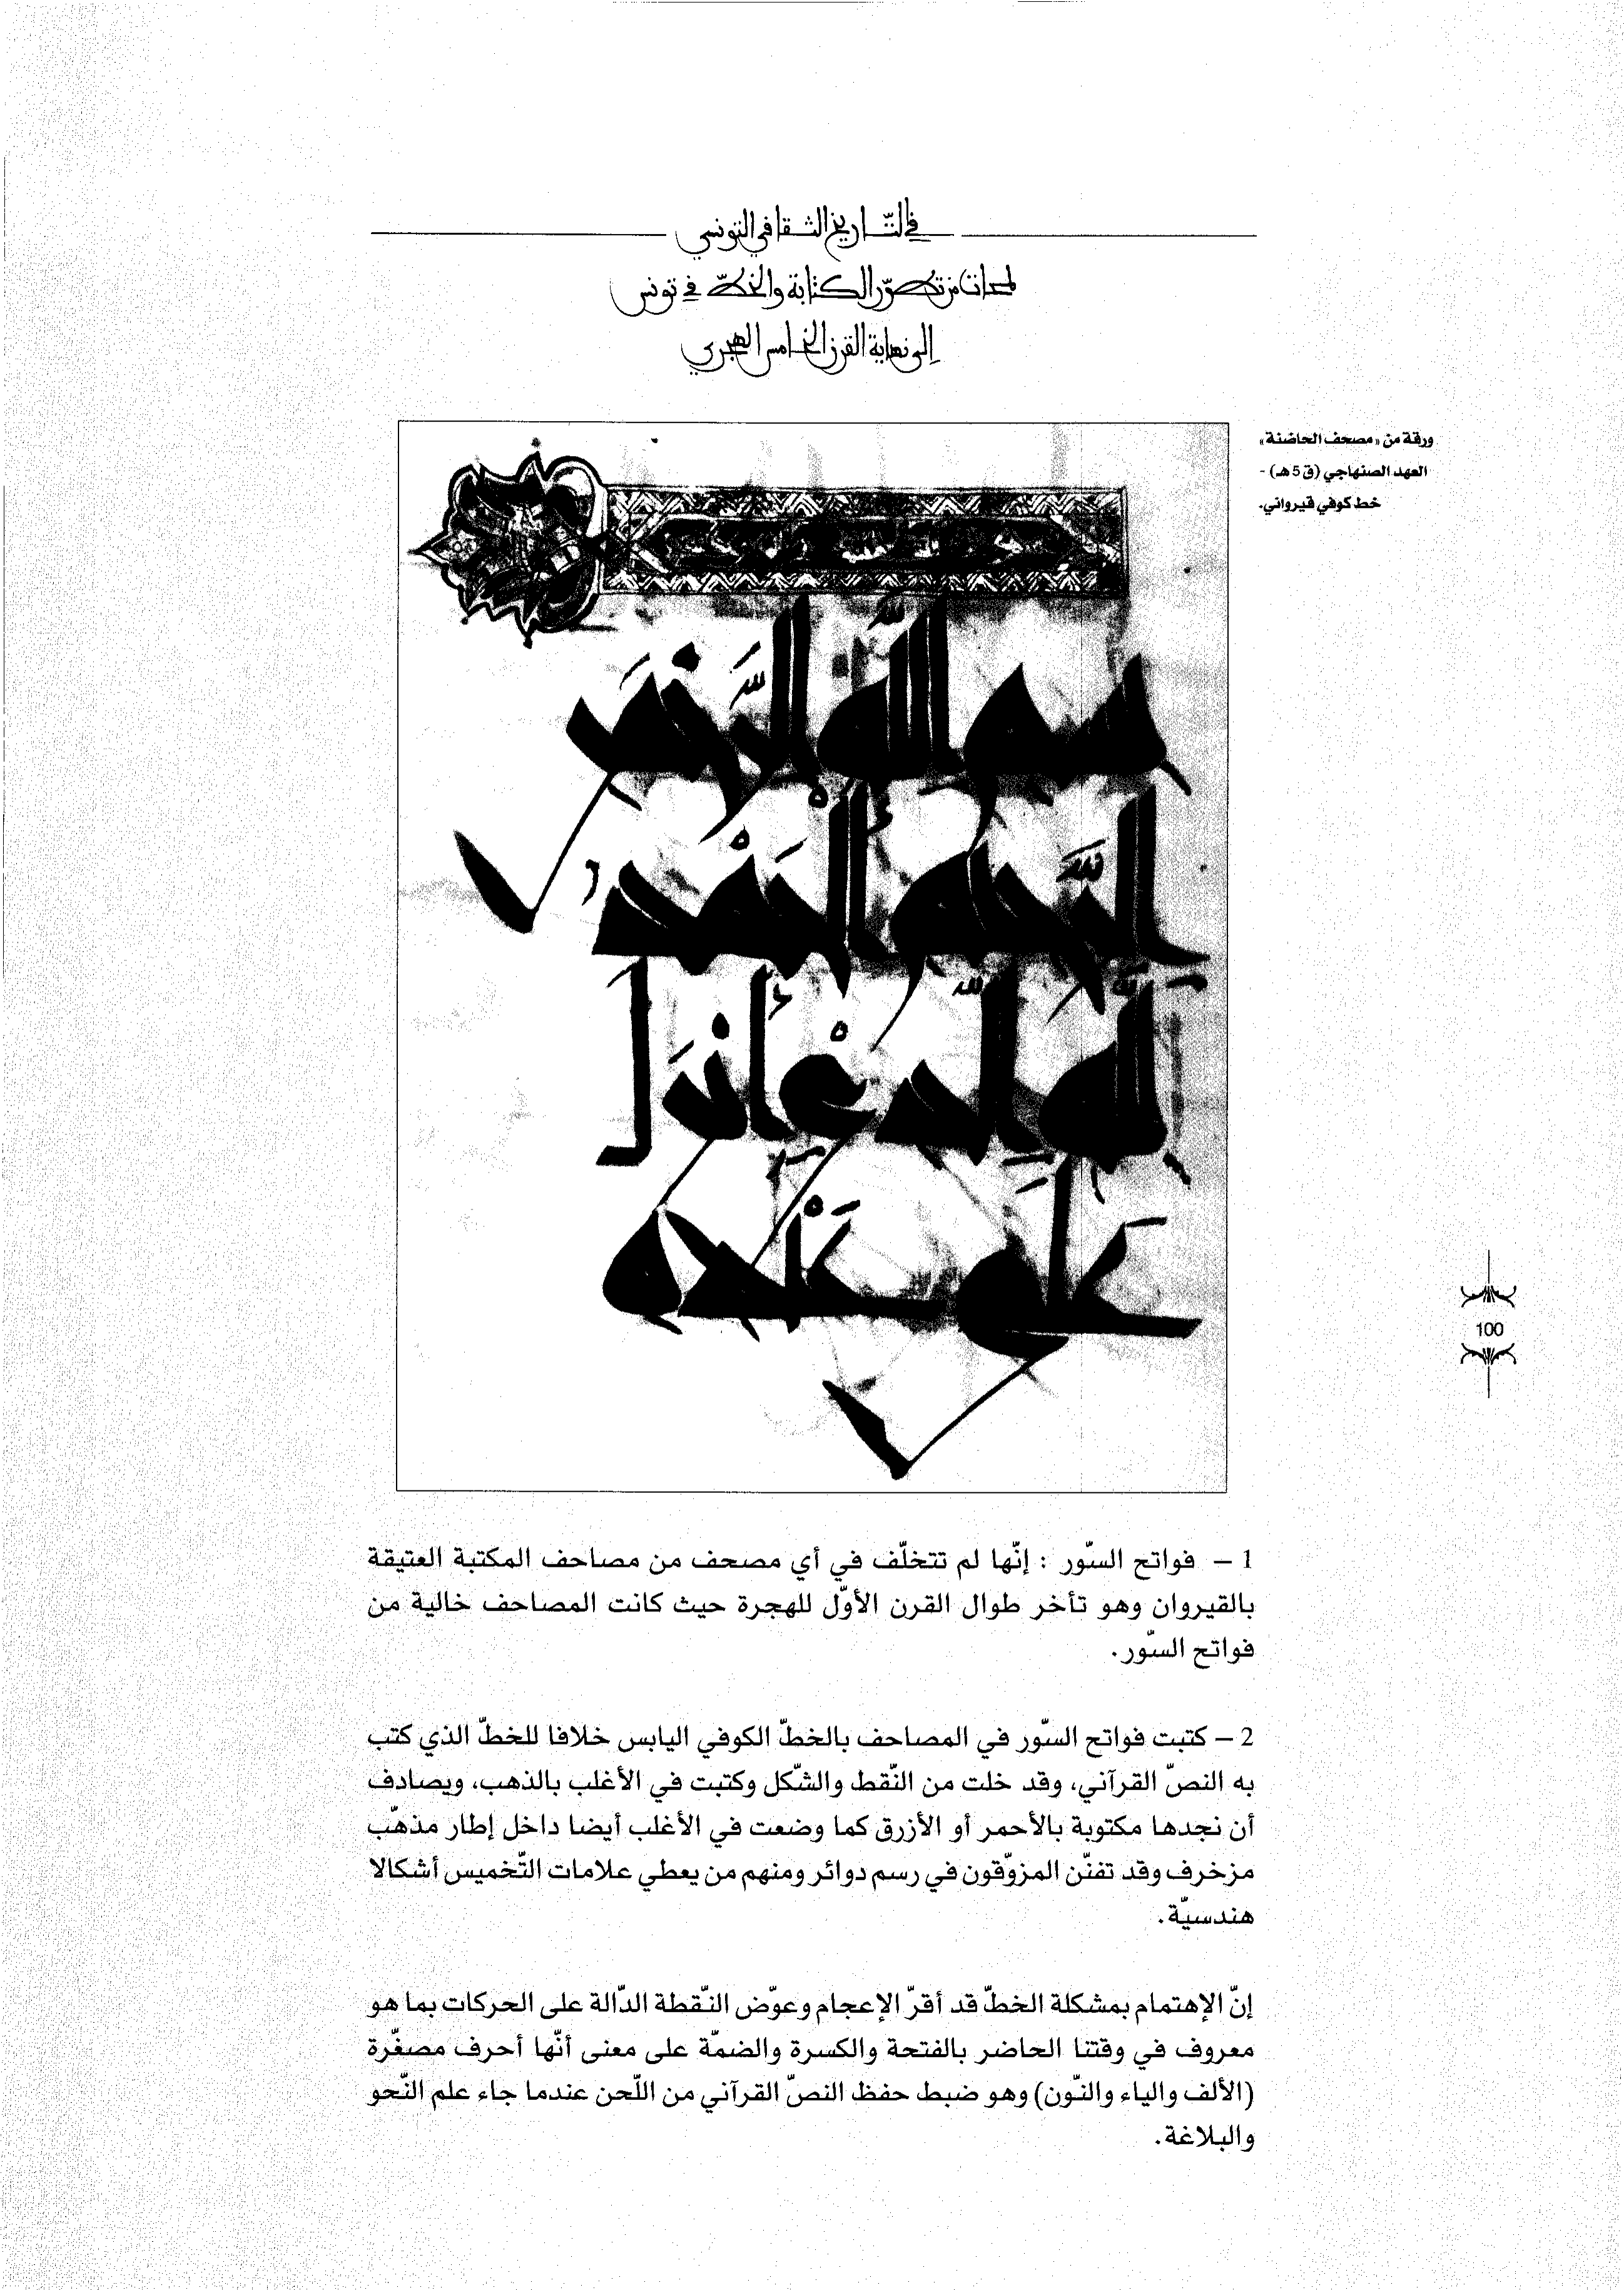 في التّاريخ الثقافي التونسي
لمحات من تطوّر الكتابة والخطّ في تونس
إلى نهاية القرن الخامس الهجري
ورقة من «مصحف الحاضنة»
العهد الصنهاجي (ق 5 هـ) -
خط كوفي قيرواني.
بسم اللّه الرّحمن
الرّحيم الحمْد
لله الّذي أنزل
على عبْده
100
1 – فواتح السّور : إنّها لم تتخلّف في أي مصحف من مصاحف المكتبة العتيقة
بالقيروان وهو تأخر طوال القرن الأوّل للهجرة حيث كانت المصاحف خالية من
فواتح السّور.
2 – كتبت فواتح السّور في المصاحف بالخطّ الكوفي اليابس خلافا للخطّ الذي كتب
به النصّ القرآني، وقد خلت من النّقط والشّكل وكتبت في الأغلب بالذهب، ويصادف
أن نجدها مكتوبة بالأحمر أو الأزرق كما وضعت في الأغلب أيضا داخل إطار مذهّب
مزخرف وقد تفنّن المزوّقون في رسم دوائر ومنهم من يعطي علامات التّخميس أشكالا
هندسيّة.
إنّ الإهتمام بمشكلة الخطّ قد أقرّ الإعجام وعوّض النّقطة الدّالة على الحركات بما هو
معروف في وقتنا الحاضر بالفتحة والكسرة والضمّة على معنى أنّها أحرف مصغّرة
(الألف والياء والنّون) وهو ضبط حفظ النصّ القرآني من اللّحن عندما جاء علم النّحو
والبلاغة.